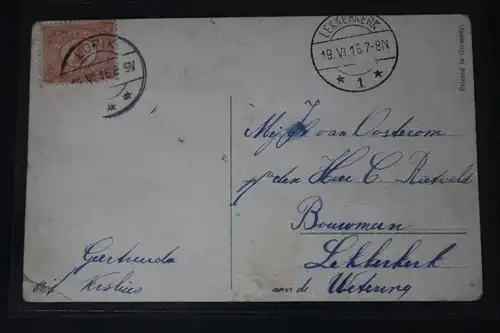 LOPIK
LEKKERKERK
19.VI.16.7-8N
1
Printed in Germany.
Mej J van Oosterom
p/a den Heer C.
Bouwman
Lekkerkerk
aan de Wetering
Geertruida